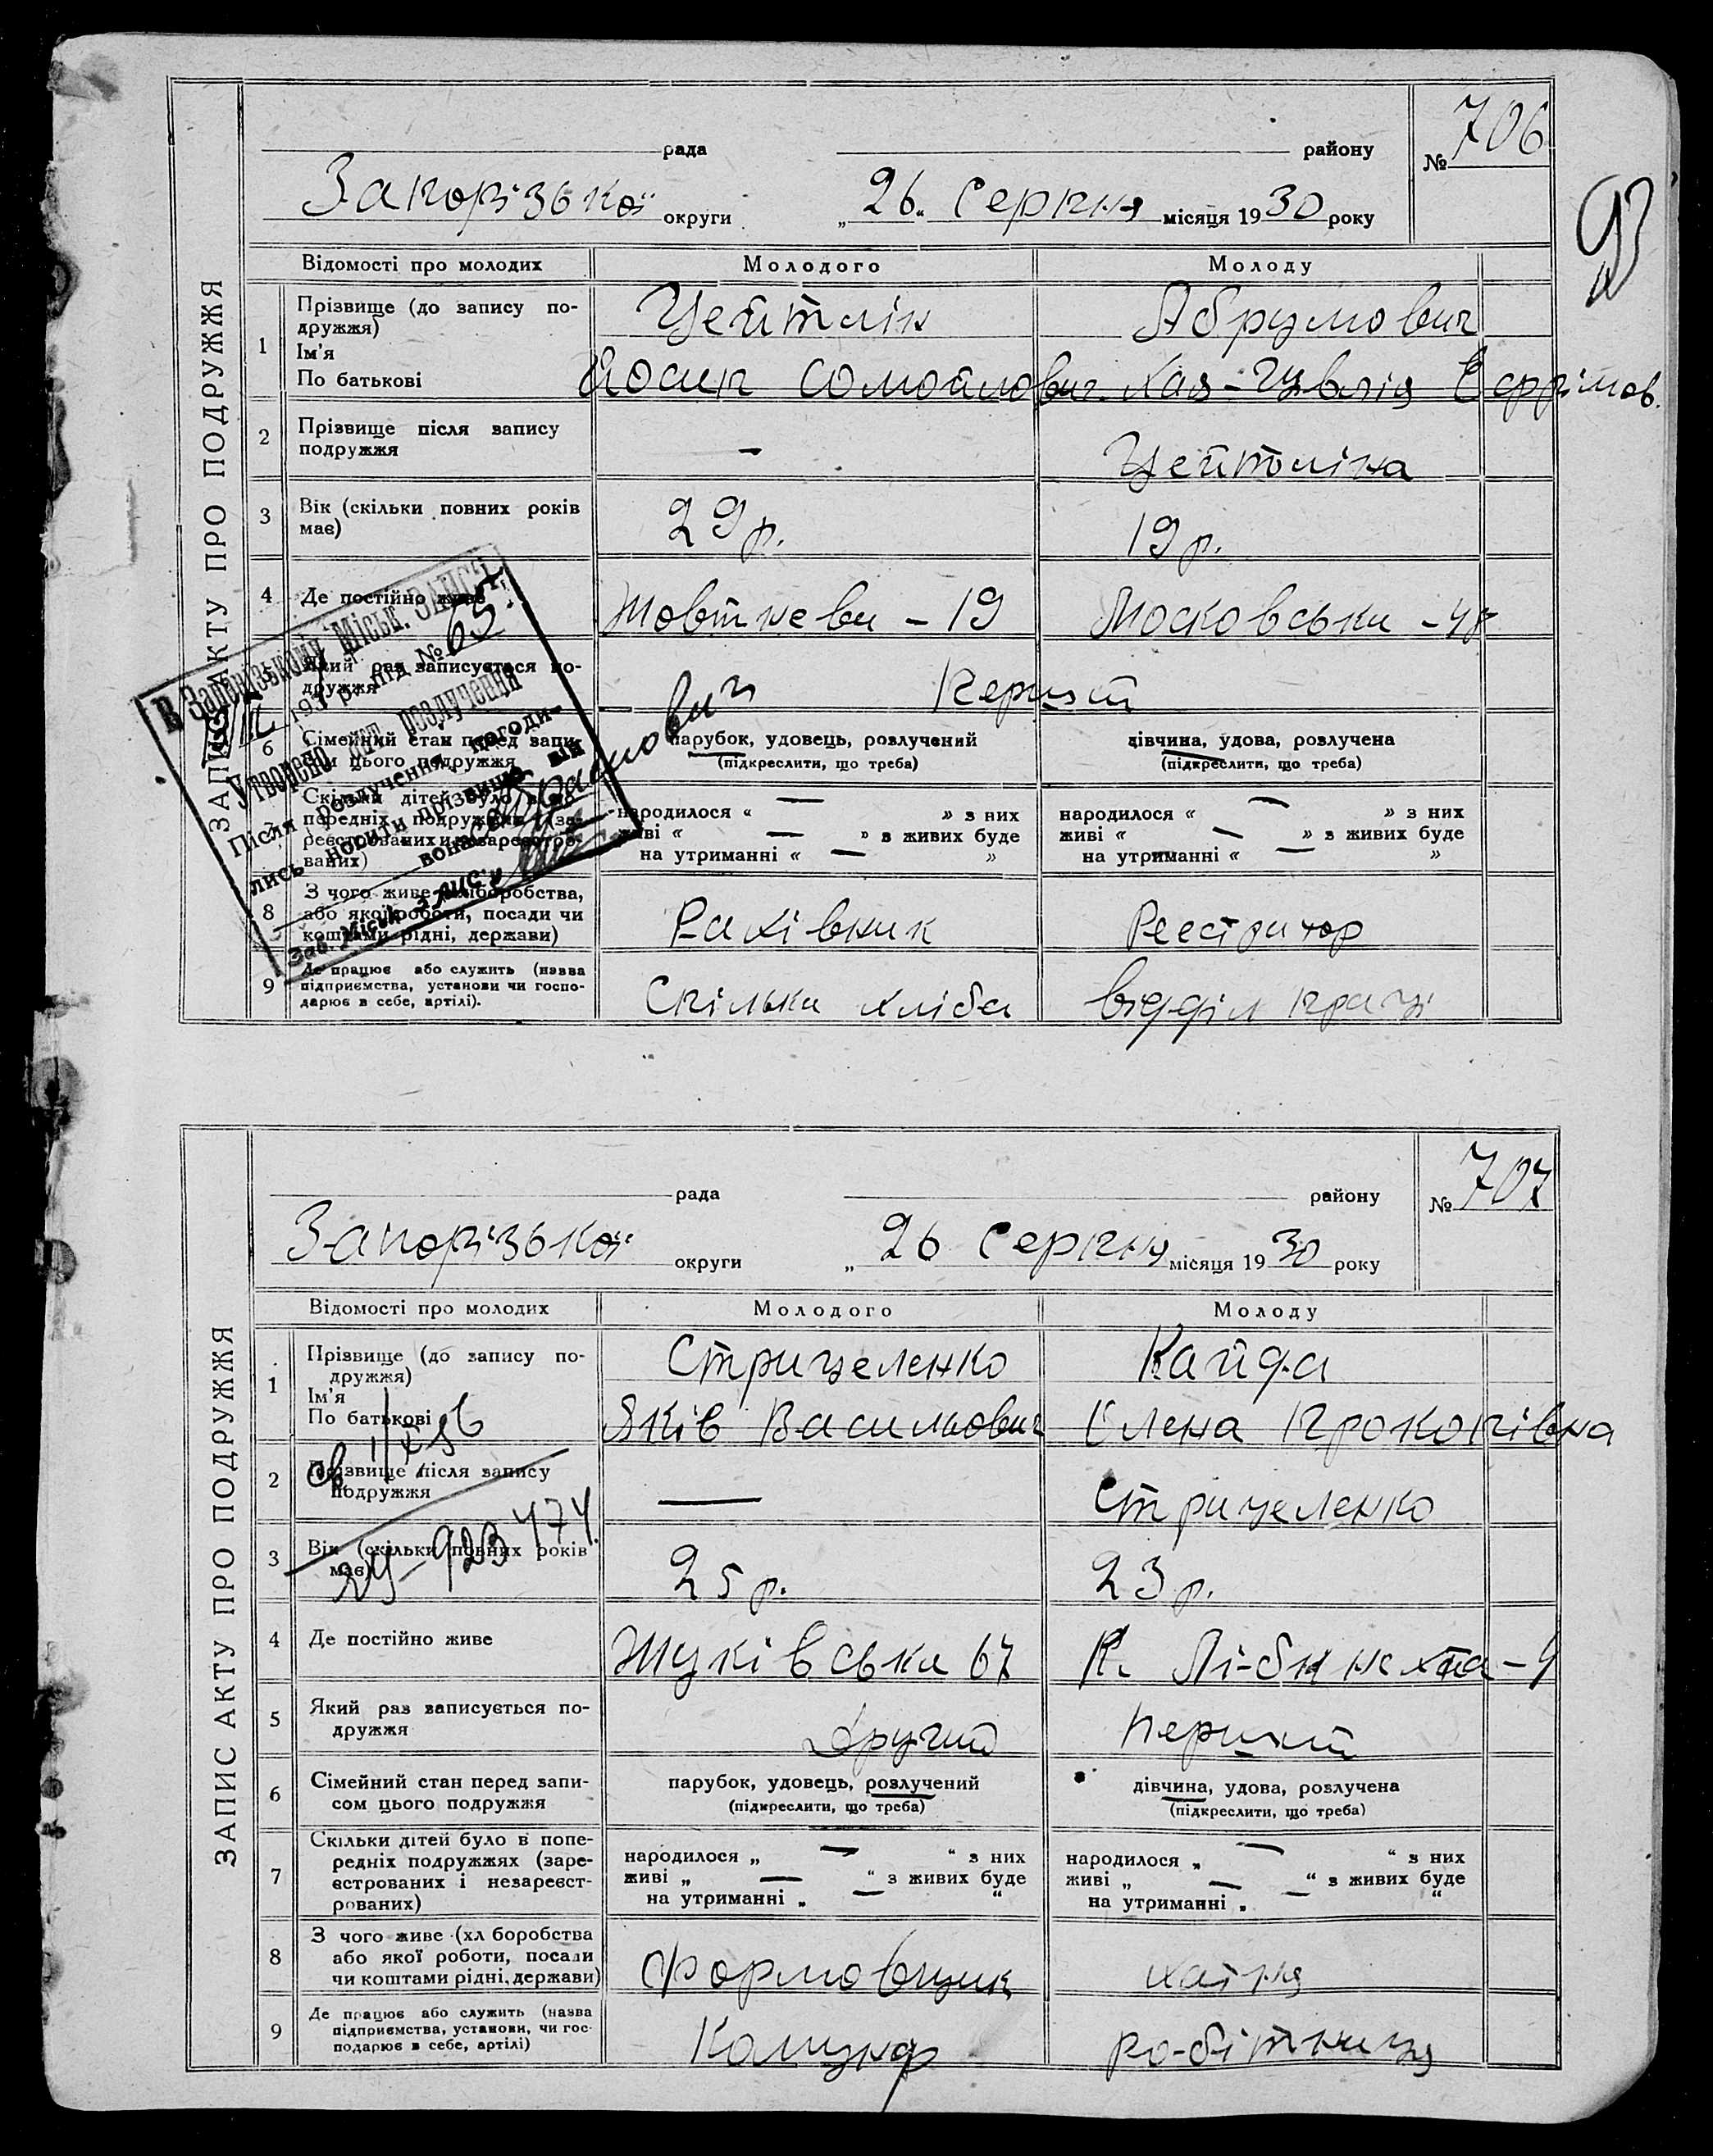 93
ЗАПИС АКТУ ПРО ПОДРУЖЖЯ
рада району № 706
Запорізької округи „26„ Серпня місяця 1930 року
Відомості про молодих Молодого Молоду
1 Прізвище (до запису по-
дружжя)
Ім'я
По батькові
Цейтлін Абрамович
Йосип Самойлович Хая-Цівлія Єфрімов.
2 Прізвище після запису
подружжя
— Цейтліна
3 Вік (скільки повних років
має)
29 р. 19 р.
4 Де постійно живе Жовтнева - 19 Московська -
5 Який раз записується по-
дружжя
перший
6 Сімейний стан перед запи-
сом цього подружжя
парубок, удовець, розлучений дівчина, удова, розлучена
(підкреслити, що треба) (підкреслити, що треба)
7 Скільки дітей було в по-
передніх подружжях (за-
реєстрованих и незареєстро-
ваних)
народилося « — » з них народилося « — » з них
живі « — » з живих буде живі « — » з живих буде
на утриманні « — » на утриманні « — »
8 З чого живе хліборобства,
або якої роботи, посади чи
коштами рідні, держави)
Рахівник Реєстратор
9 Де працює або служить (назва
підприємства, установи чи госпо-
дарює в себе, артілі).
Спілька хліба відділ праці
В Запорізькому Міськ. ЗАГСі
193 р. під № 65
Утворено акт розлучення
Після розлучення, погоди-
лись носити прізвище він
вона Абрамович
Зав. Міськ ЗАГС'у
ЗАПИС АКТУ ПРО ПОДРУЖЖЯ
рада району № 707
Запорізької округи „ 26 Серпня місяця 1930 року
Відомості про молодих Молодого Молоду
1 Прізвище (до запису по-
дружжя)
Ім'я
По батькові
Стрицеленко Кайда
Яків Васильович Олена Прокопівна
2 Прізвище після запису
подружжя
— Стрицеленко
3 Вік (скільки повних років
має)
25 р. 23 р.
4 Де постійно живе Жуківська 67 К. Лібкнехта - 9
5 Який раз записується по-
дружжя
Другий перший
6 Сімейний стан перед запи-
сом цього подружжя
парубок, удовець, розлучений дівчина, удова, розлучена
(підкреслити, що треба) (підкреслити, що треба)
7 Скільки дітей було в попе-
редніх подружжях (заре-
єстрованих і незареєст-
рованих)
народилося „ — “ з них народилося „ — “ з них
живі „ — “ з живих буде живі „ — “ з живих буде
на утриманні „ — “ на утриманні „ — “
8 З чого живе (хл боробства
або якої роботи, посади
чи коштами рідні, держави)
Формовщик хатня
9 Де працює або служить (назва
підприємства, установи, чи гос-
подарює в себе, артілі)
Комунар робітниця